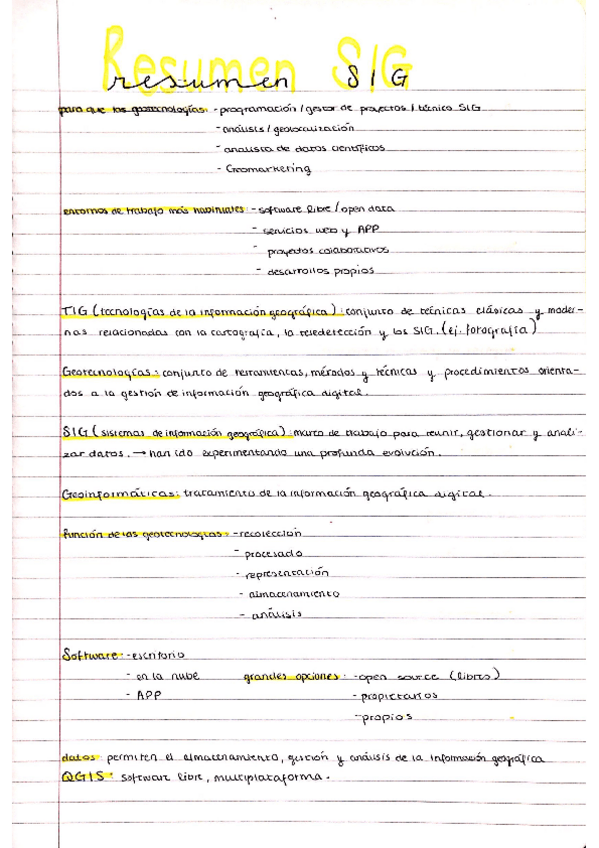 Resumen SIG
resumen SIG
para que las geotecnologías: - programación / gestor de proyectos / técnico SIG
- análisis / geolocalización
- analista de datos científicos
- Geomarketing
entornos de trabajo más habituales: - software libre / open data
- servicios web y APP
- proyectos colaborativos
- desarrollos propios
TIG (tecnologías de la información geográfica): conjunto de técnicas clásicas y moder-
nas relacionadas con la cartografía, la teledetección y los SIG. (ej. fotografía)
Geotecnologías: conjunto de herramientas, métodos y técnicas y procedimientos orienta-
dos a la gestión de información geográfica digital.
SIG (sistemas de información geográfica): marco de trabajo para reunir, gestionar y anali-
zar datos. → han ido experimentando una profunda evolución.
Geoinformáticas: tratamiento de la información geográfica digital.
función de las geotecnologías: - recolección
- procesado
- representación
- almacenamiento
- análisis
Software: - escritorio
- en la nube grandes opciones: - open source (libres)
- APP - propietarios
- propios
datos: permiten el almacenamiento, gestión y análisis de la información geográfica
QGIS: software libre, multiplataforma.